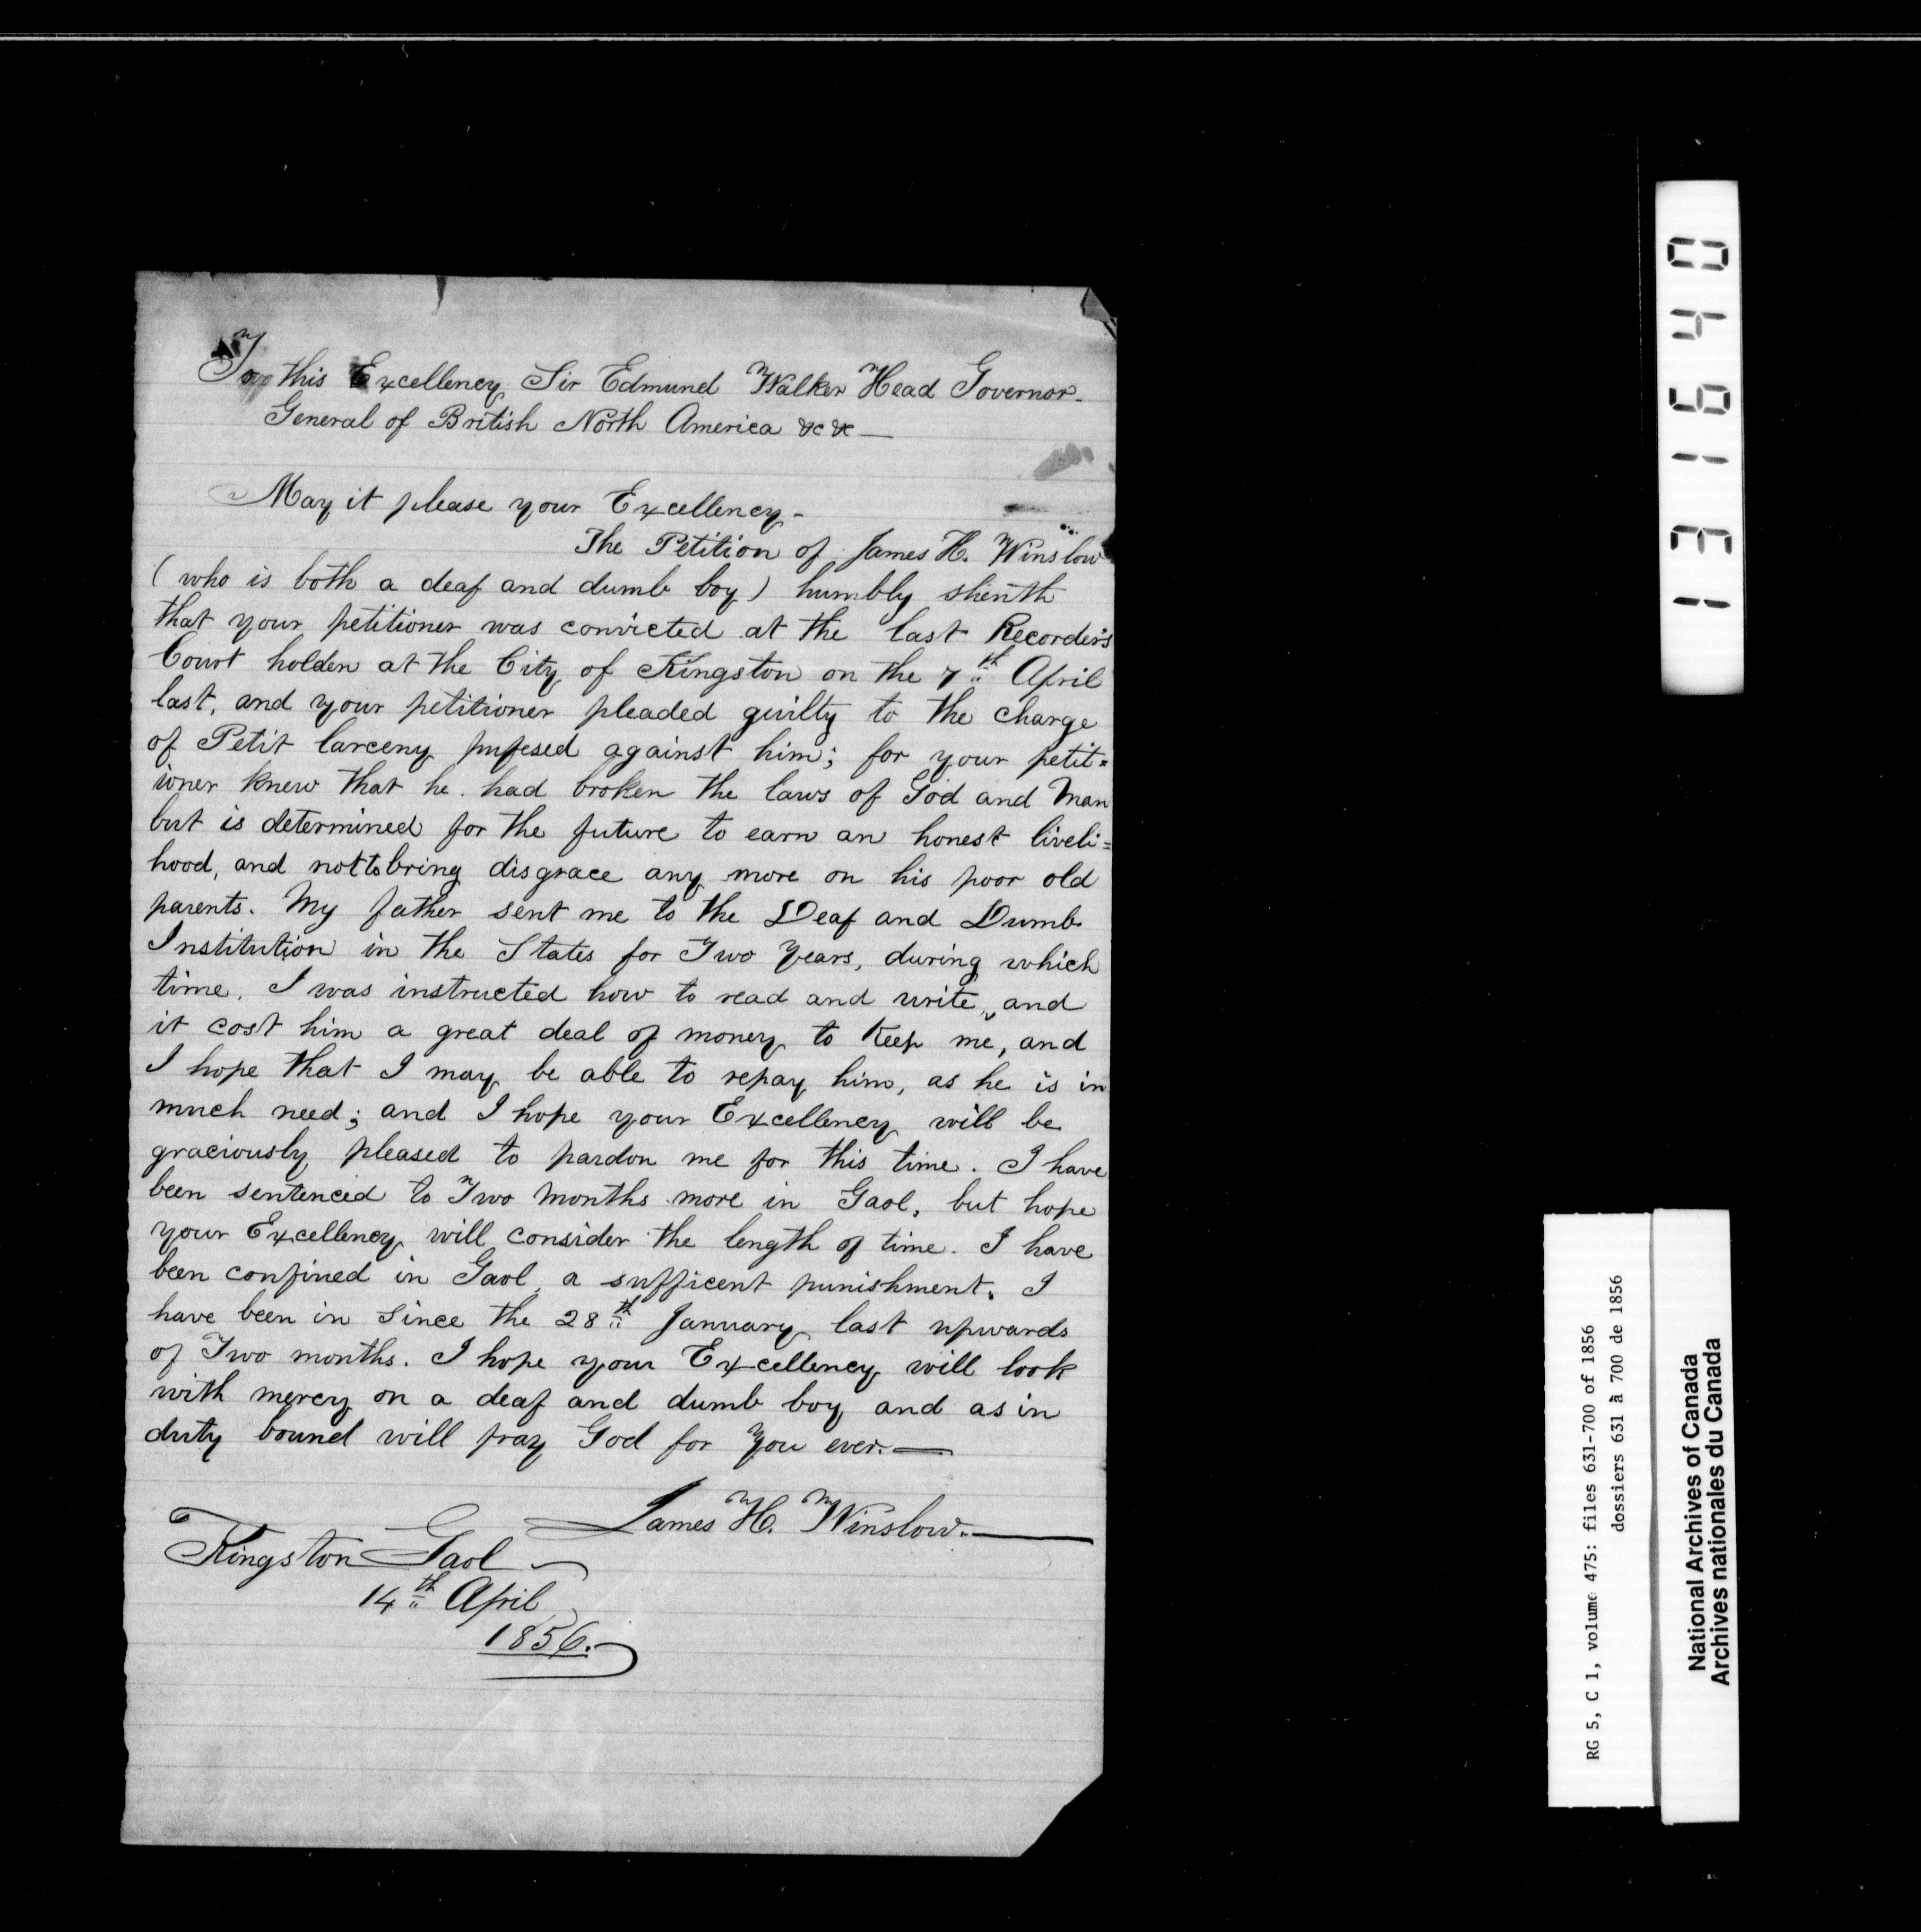 To this Excellency Sir Edmund Walker Head Governor-
General of British North America &c &c —
May it please your Excellency -
The Petition of James H. Winslow
( who is both a deaf and dumb boy ) humbly sheńth
that your petitioner was convicted at the last Recorder's
Court holden at the City of Kingston on the 7th April
last, and your petitioner pleaded guilty to the charge
of Petit larceny against him; for your petit=
ioner knew that he had broken the laws of God and Man
but is determined for the future to earn an honest liveli=
hood, and not to bring disgrace any more on his poor old
parents. My father sent me to the Deaf and Dumb
Institution in the States for Two Years, during which
time. I was instructed how to read and write, and
it cost him a great deal of money to Keep me, and
I hope that I may be able to repay him, as he is in
much need; and I hope your Excellency will be
graciously pleased to pardon me for this time. I have
been sentenced to Two Months more in Gaol, but hope
your Excellency will consider the length of time. I have
been confined in Gaol, a sufficent punishment. I
have been in Since the 28th January last upwards
of Two months. I hope your Excellency will look
with mercy on a deaf and dumb boy and as in
duty bound will pray God for You ever. —
James H. Winslow. —
Kingston Gaol
14th April
1856.
131640
RG 5, C 1, volume 475: files 631-700 of 1856
dossiers 631 à 700 de 1856
National Archives of Canada
Archives nationales du Canada